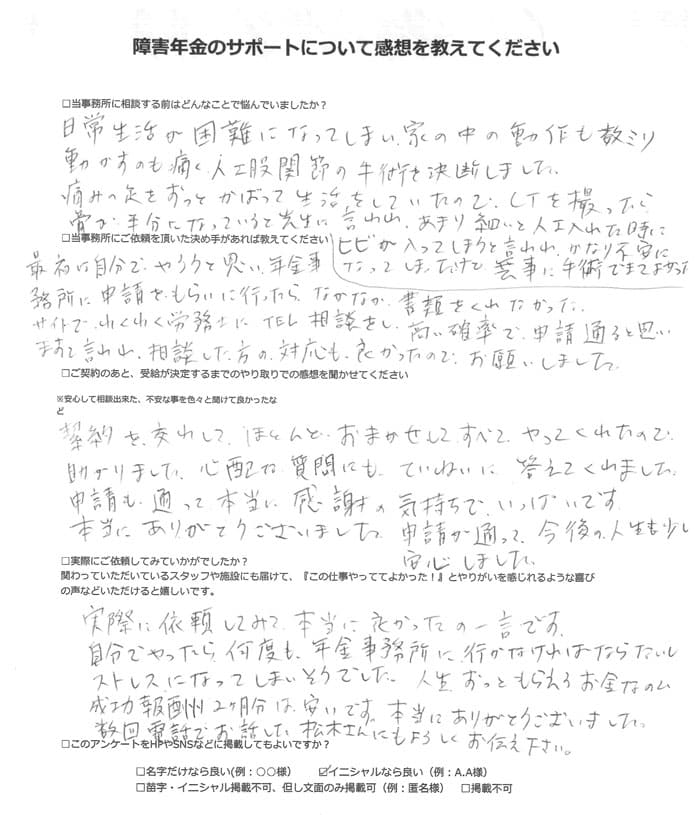 障害年金のサポートについて感想を教えてください
□当事務所に相談する前はどんなことで悩んでいましたか？
日常生活が困難になってしまい、家の中の動作も数ミリ
動かすのも痛く、人工股関節の手術を決断しました。
痛みの足をずっとかばって生活をしていたので、CTを撮ったら
骨が半分になっていると先生に言われ、あまり細いと人工入れた時に
ヒビが入ってしまうと言われ、かなり不安に
なってしまったけど、無事に手術できてよかった
□当事務所にご依頼を頂いた決め手があれば教えてください
最初は自分でやろうと思い、年金事
務所に申請をもらいに行ったら、なかなか、書類をくれなかった。
サイトで、わくわく労務士にTEL相談をし、高い確率で、申請通ると思い
ますと言われ、相談した方の対応も、良かったので、お願いしました。
□ご契約のあと、受給が決定するまでのやり取りでの感想を聞かせてください
※安心して相談出来た、不安な事を色々と聞けて良かったな
ど
契約を、交わして、ほとんど、おまかせして、すべて、やってくれたので、
助かりました。心配な質問にも、ていねいに、答えてくれました。
申請も、通って、本当に、感謝の気持ちで、いっぱいです。
本当にありがとうございました。申請が通って、今後の人生も少し
安心しました。
□実際にご依頼してみていかがでしたか？
関わっていただいているスタッフや施設にも届けて、『この仕事やっててよかった！』とやりがいを感じれるような喜び
の声などいただけると嬉しいです。
実際に依頼してみて、本当に良かったの一言です。
自分でやったら、何度も、年金事務所に、行かなければならないし
ストレスになってしまいそうでした。人生、ずっともらえるお金なので
成功報酬2ヶ月分は、安いです。本当にありがとうございました。
数回電話でお話した、松木さんにもよろしくお伝え下さい。
□このアンケートをHPやSNSなどに掲載してもよいですか？
□名字だけなら良い(例：○○様) ☑イニシャルなら良い（例：A.A様）
□苗字・イニシャル掲載不可、但し文面のみ掲載可（例：匿名様） □掲載不可